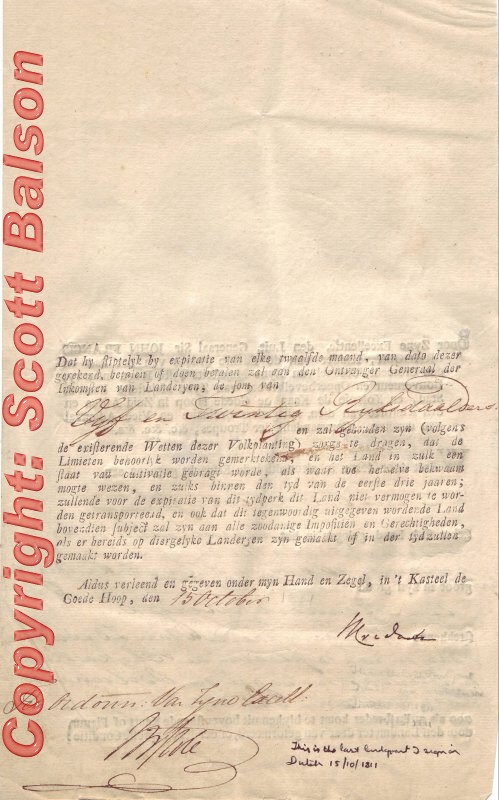 Copyright: Scott Balson
Dat hy stiptelyk by expiratie van elke twaalfde maand, van dato dezer
gerekend, betalen of doen betalen zal aan den Ontvanger Generaal der
Inkomsten van Landeryen, de som van
Vyf en Twintig Ryksdaalders
en zal gehouden zyn (volgens
de existerende Wetten dezer Volkplanting) zorge te dragen, dat de
Limieten behoorlyk worden gemerktekend, en het Land in zulk een
staat van cultivatie gebragt worde, als waar toe hetzelve bekwaam
mogte wezen, en zulks binnen den tyd van de eerste drie jaaren;
zullende voor de expiratie van dit tydperk dit Land niet vermogen te wor-
den getransporteerd, en ook dat dit tegenwoordig uitgegeven wordende Land
bovendien subject zal zyn aan alle zoodanige Impositien en Gerechtigheden,
als er bereids op diergelyke Landeryen zyn gemaakt of in der tyd zullen
gemaakt worden.
Aldus verleend en gegeven onder myn Hand en Zegel, in 't Kasteel de
Goede Hoop, den 15 October
Ordonn. Van Zyne Excell.
This is the last landgrant I sign in
Dutch 15/10/1811